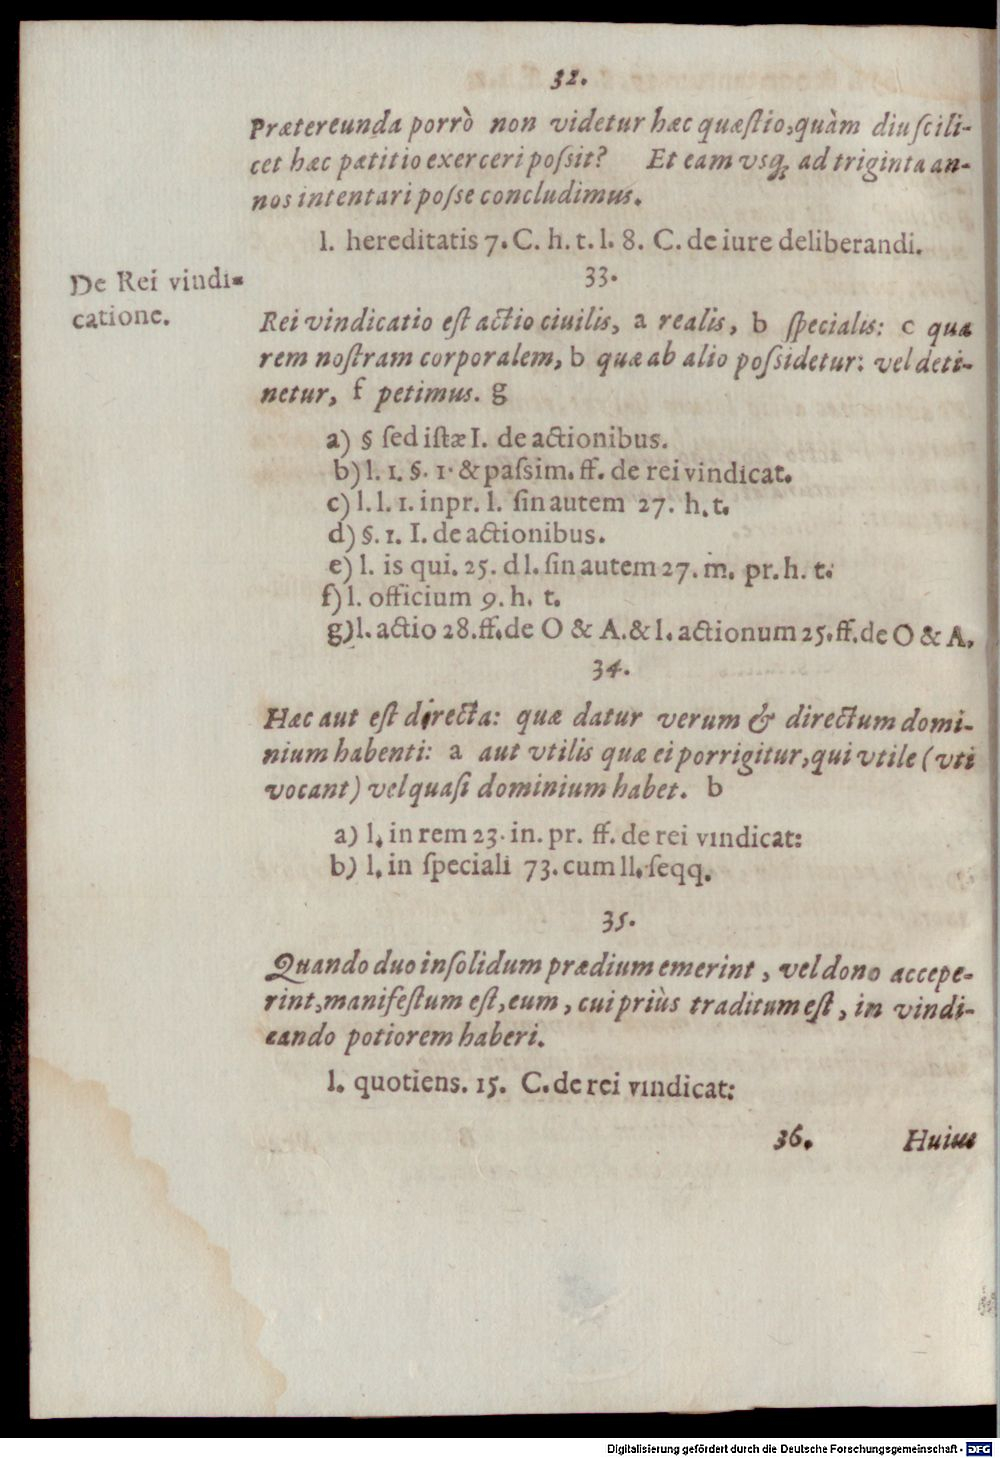 32.
Prætereunda porrò non videtur hæc quæstio, quàm diu scili-
cet hæc pætitio exerceri possit? Et eam vsq; ad triginta an-
nos intentari posse concludimus.
l. hereditatis 7. C. h. t. l. 8. C. de iure deliberandi.
De Rei vindi-
catione.
33.
Rei vindicatio est actio ciuilis, a realis, b specialis: c qua
rem nostram corporalem, b quæ ab alio possidetur: vel deti-
netur, f petimus. g
a) § sed istæ I. de actionibus.
b) l. 1. §. 1. & passim. ff. de rei vindicat.
c) l. l. 1. inpr. l. sin autem 27. h. t.
d) §. 1. I. de actionibus.
e) l. is qui. 25. d l. sin autem 27. in. pr. h. t.
f) l. officium 9. h. t.
g) l. actio 28. ff. de O & A. & l. actionum 25. ff. de O & A.
34.
Hæc aut est directa: quæ datur verum & directum domi-
nium habenti: a aut vtilis quæ ei porrigitur, qui vtile (vti
vocant) vel quasi dominium habet. b
a) l. in rem 23. in. pr. ff. de rei vindicat:
b) l. in speciali 73. cum ll. seqq.
35.
Quando duo in solidum prædium emerint, vel dono accepe-
rint, manifestum est, eum, cui priùs traditum est, in vindi-
cando potiorem haberi.
l. quotiens. 15. C. de rei vindicat:
36. Huius
Digitalisierung gefördert durch die Deutsche Forschungsgemeinschaft - DFG